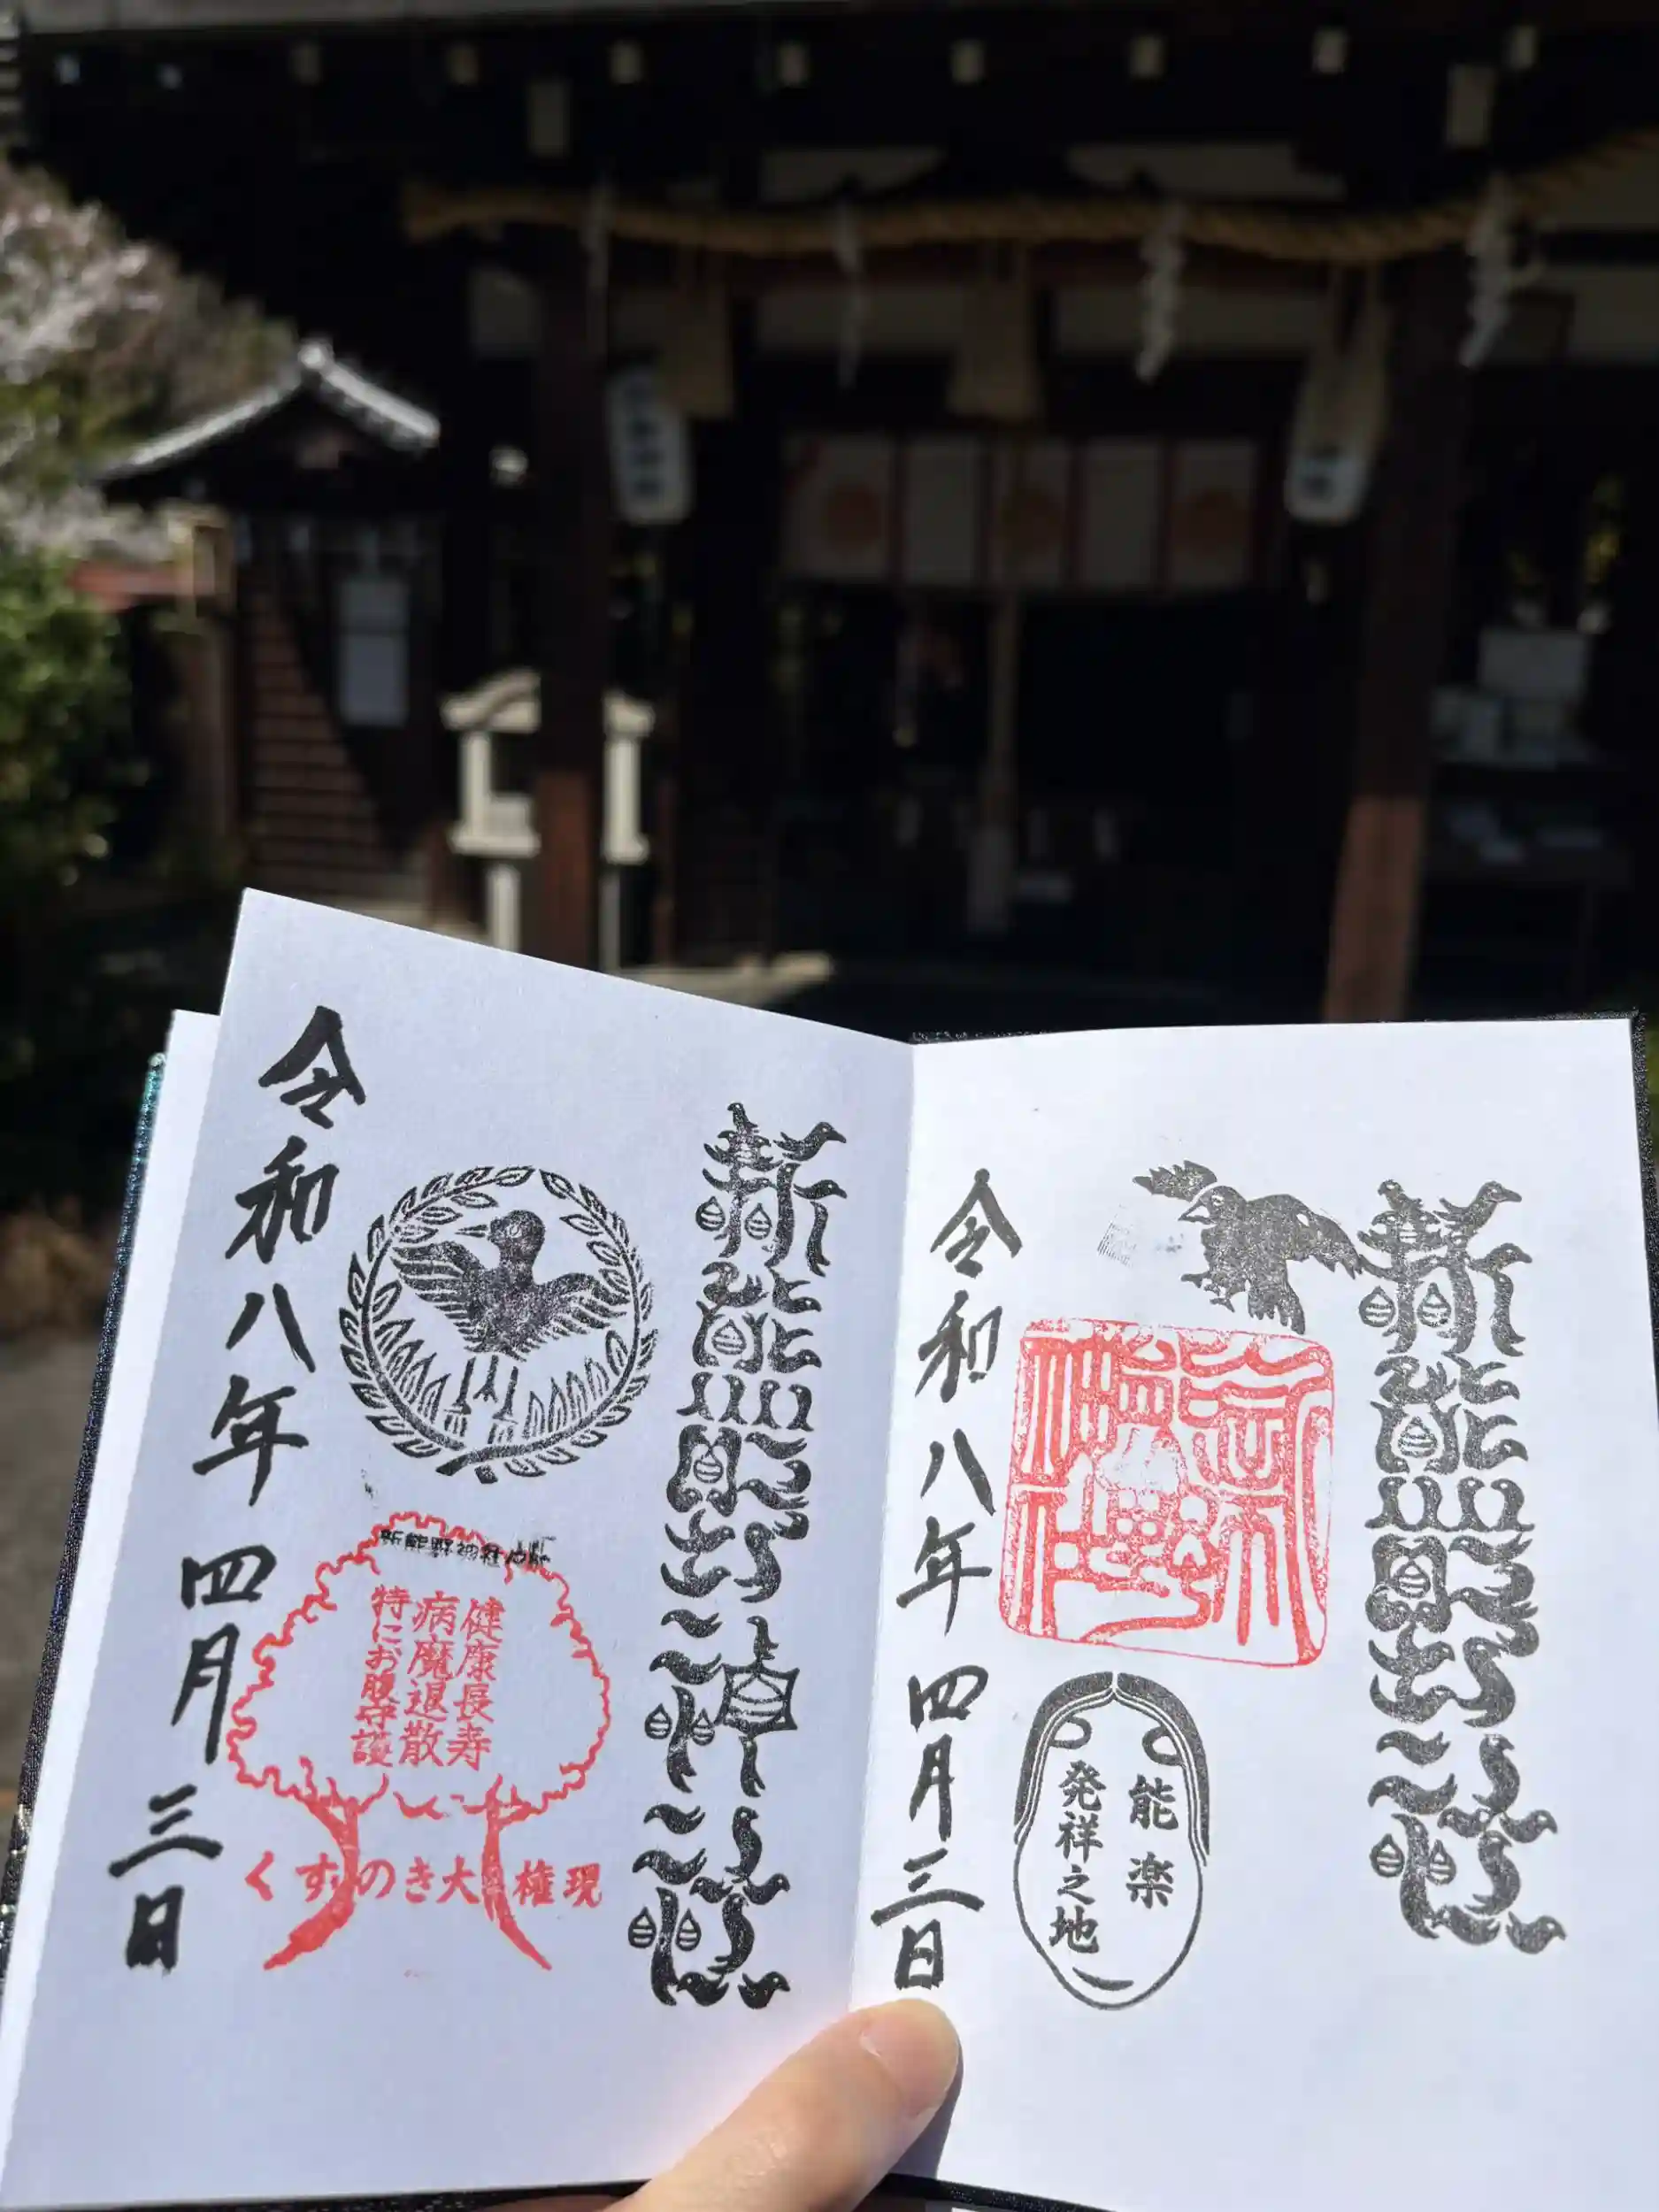 新熊野社
能楽
発祥之地
令和八年四月三日
新熊野神社
新熊野神社
健康長寿
病魔退散
特にお腹守護
くすのき大権現
令和八年四月三日